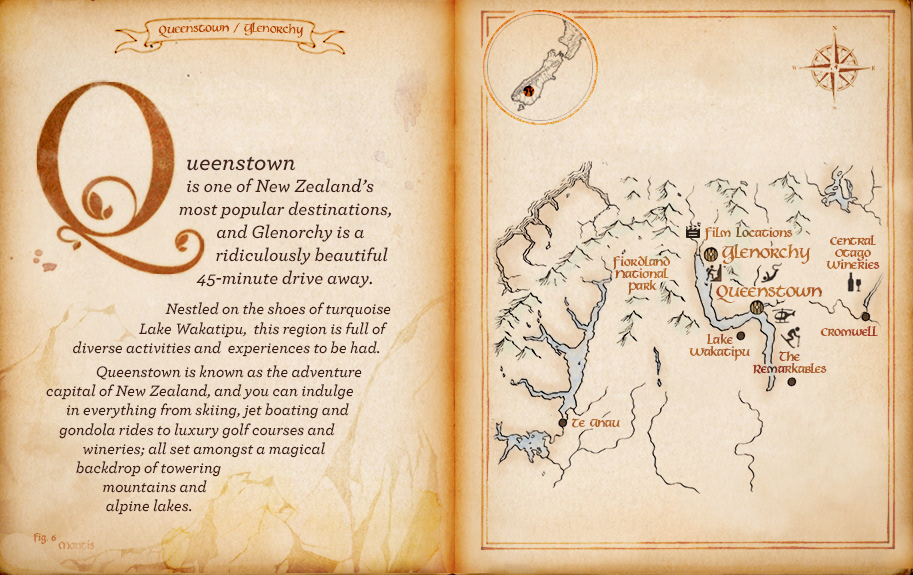 Queenstown / Glenorchy
Queenstown
is one of New Zealand's
most popular destinations,
and Glenorchy is a
ridiculously beautiful
45-minute drive away.
Nestled on the shoes of turquoise
Lake Wakatipu, this region is full of
diverse activities and experiences to be had.
Queenstown is known as the adventure
capital of New Zealand, and you can indulge
in everything from skiing, jet boating and
gondola rides to luxury golf courses and
wineries; all set amongst a magical
backdrop of towering
mountains and
alpine lakes.
Fig. 6
Montis
N
Film Locations
Glenorchy
Fiordland
National
Park
Central
Otago
Wineries
Queenstown
Cromwell
Lake
Wakatipu
The
Remarkables
Te Anau